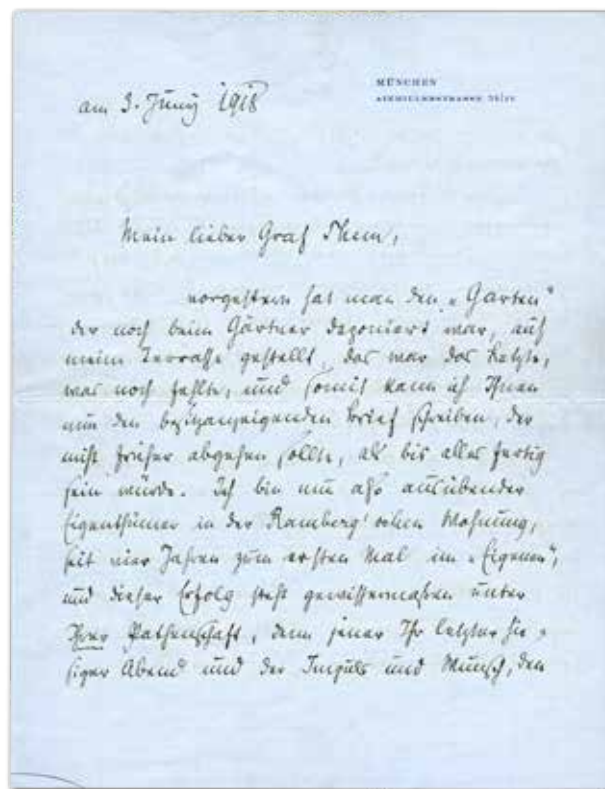 MÜNCHEN
AINMILLERSTRASSE
am 3. Juny 1918
Mein lieber Graf Thun,
vorgestern hat man den „Garten“
der noch beim Gärtner deponiert war, auf
meine Terrasse gestellt, das war das Letzte,
was noch fehlte, und somit kann ich Ihnen
nun den besitzanzeigenden Brief schreiben, der
nicht früher abgehen sollte, als bis alles fertig
sein würde. Ich bin nun also ausübender
Eigenthümer in der Ramberg'schen Wohnung,
seit vier Jahren zum ersten Mal im „Eigenen“,
und dieser Erfolg steht gewissermaßen unter
Ihrer Pathenschaft, denn jener Ihr letzter hie-
siger Abend und der Impuls und Wunsch, den